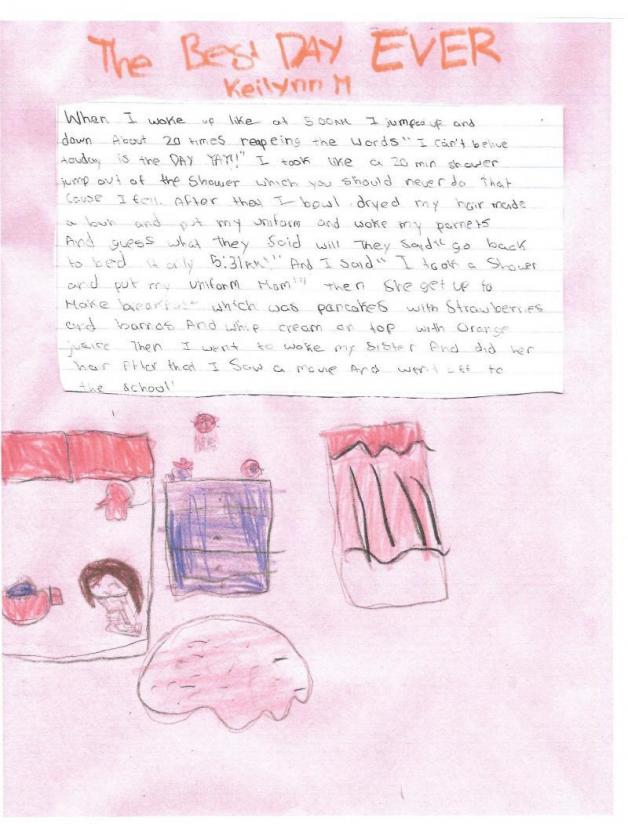 The Best DAY EVER
Keilynn M
When I woke up like at 5:00AM I jumped up and
down About 20 times reapeing the words" I can't belive
touday is the DAY YAY!!" I took like a 20 min shower
jump out of the Shower which you should never do that
Cause I fell. After that I bowl dryed my hair made
a bun and put my uniform and woke my parnets
And guess what They Said will They Said" go back
to bed it only 5:31AM!" And I said" I took a Shower
and put my uniform Mom!!!" Then She get up to
Make breakfast which was pancakes with Strawberries
and barros And whip cream on top with Orange
jusire Then I went to woke my SISter And did her
hair After that I Saw a movie And went off to
the school!